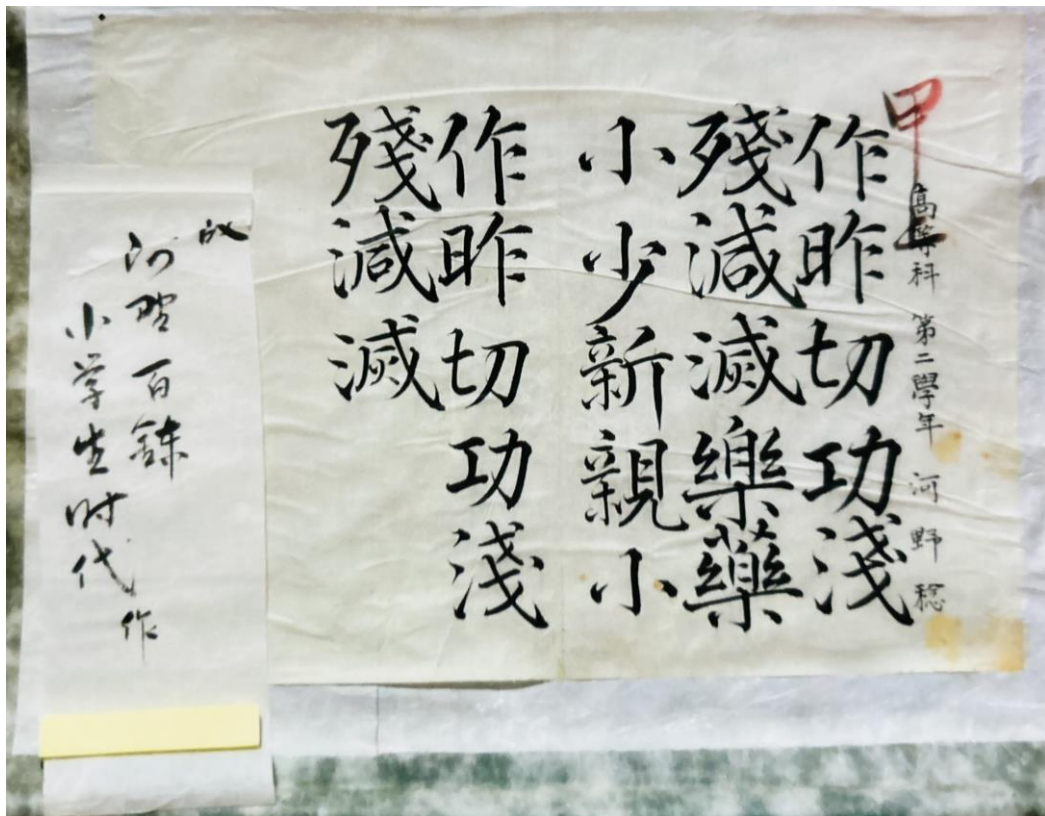 甲上
高等科 第二學年 河野稔
作昨切功淺
殘減滅樂藥
小少新親小
作昨切功淺
殘減滅
故
河野百錬
小学生时代
作